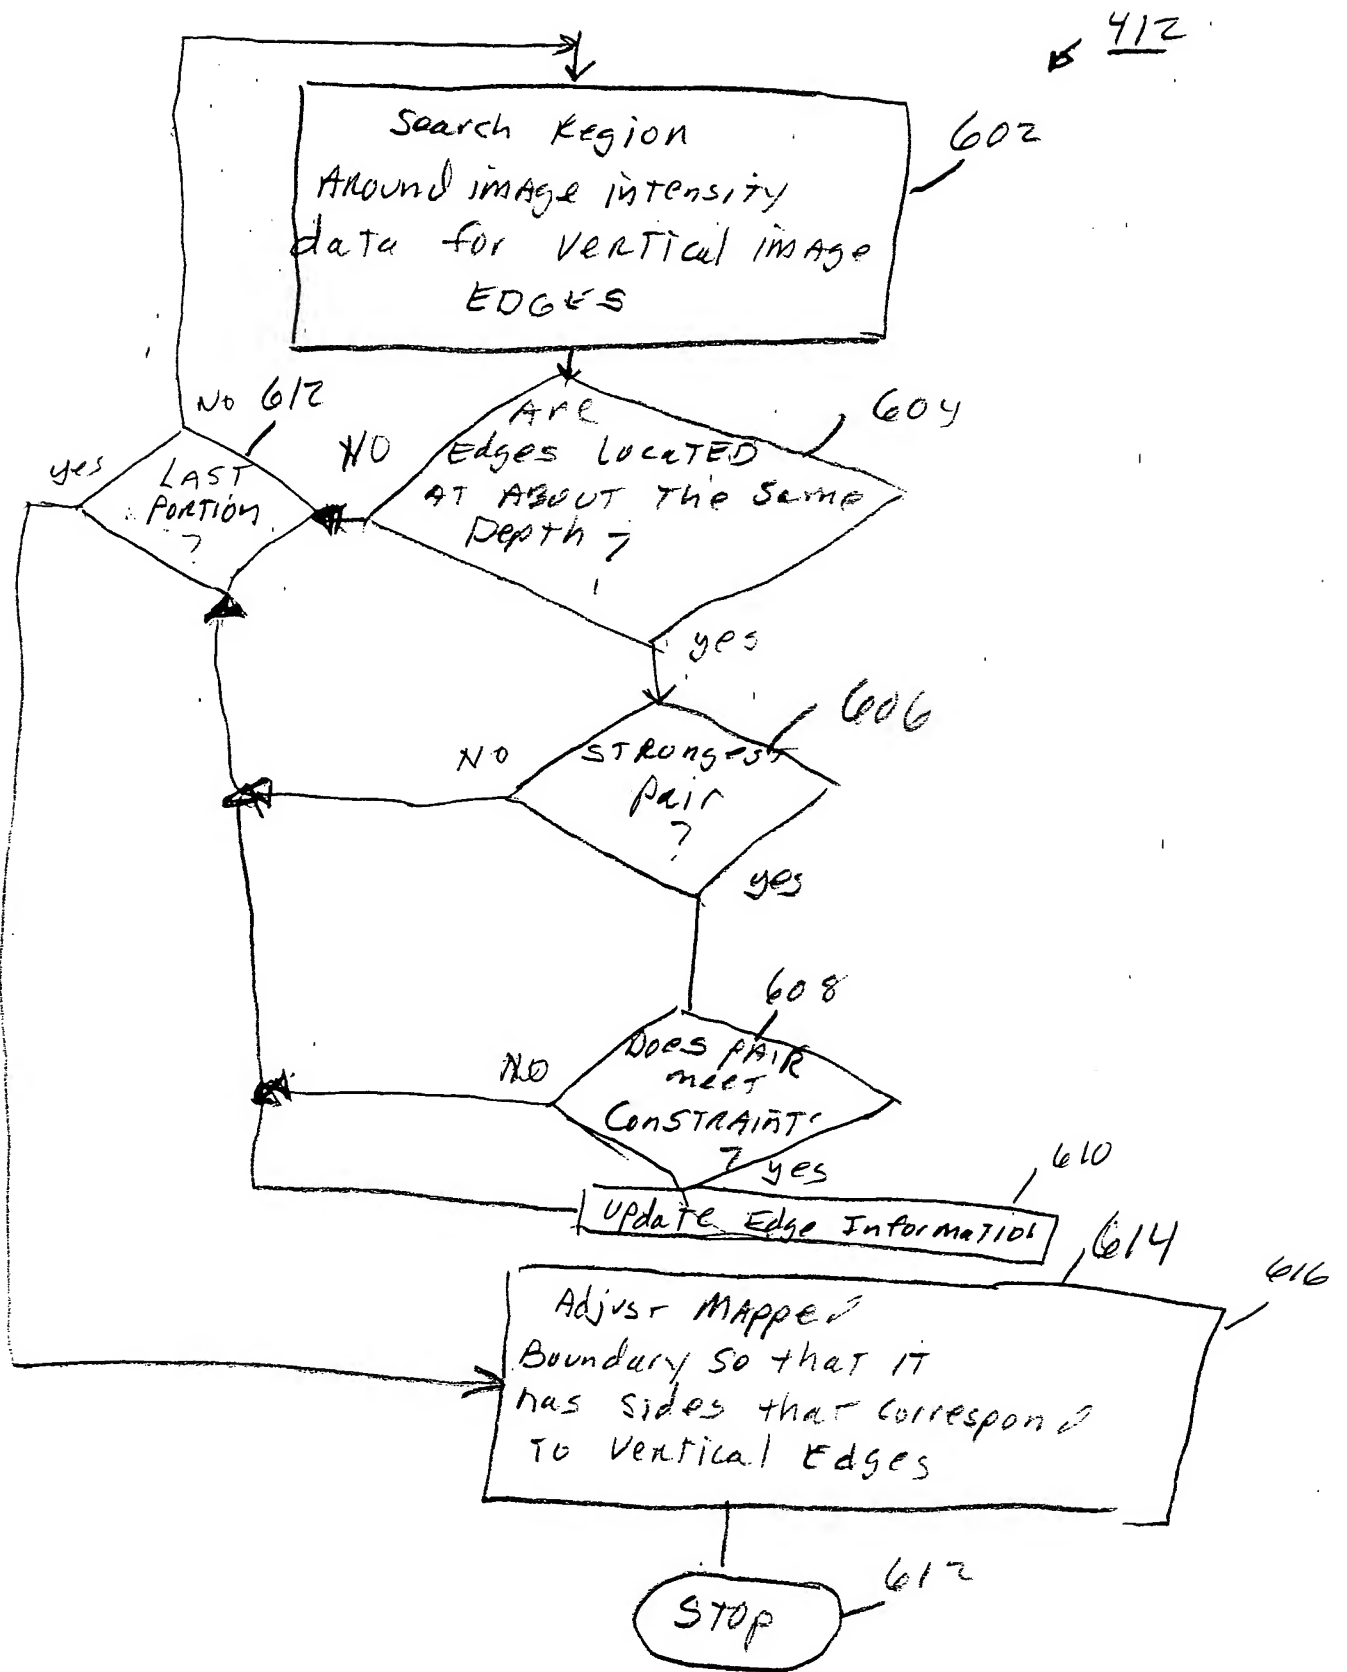 412
602
Search Region
Around image intensity
data for vertical image
EDGES
No 612
yes
LAST
PORTION
?
NO
604
Are
Edges LOCATED
AT ABOUT The Same
Depth ?
yes
606
NO
STRongest
Pair
?
yes
608
NO
Does PAIR
meet
ConSTRAINTS
? yes
610
Update Edge Information
614
616
Adjust Mapped
Boundary so that iT
has sides that correspond
To Vertical Edges
612
STOp